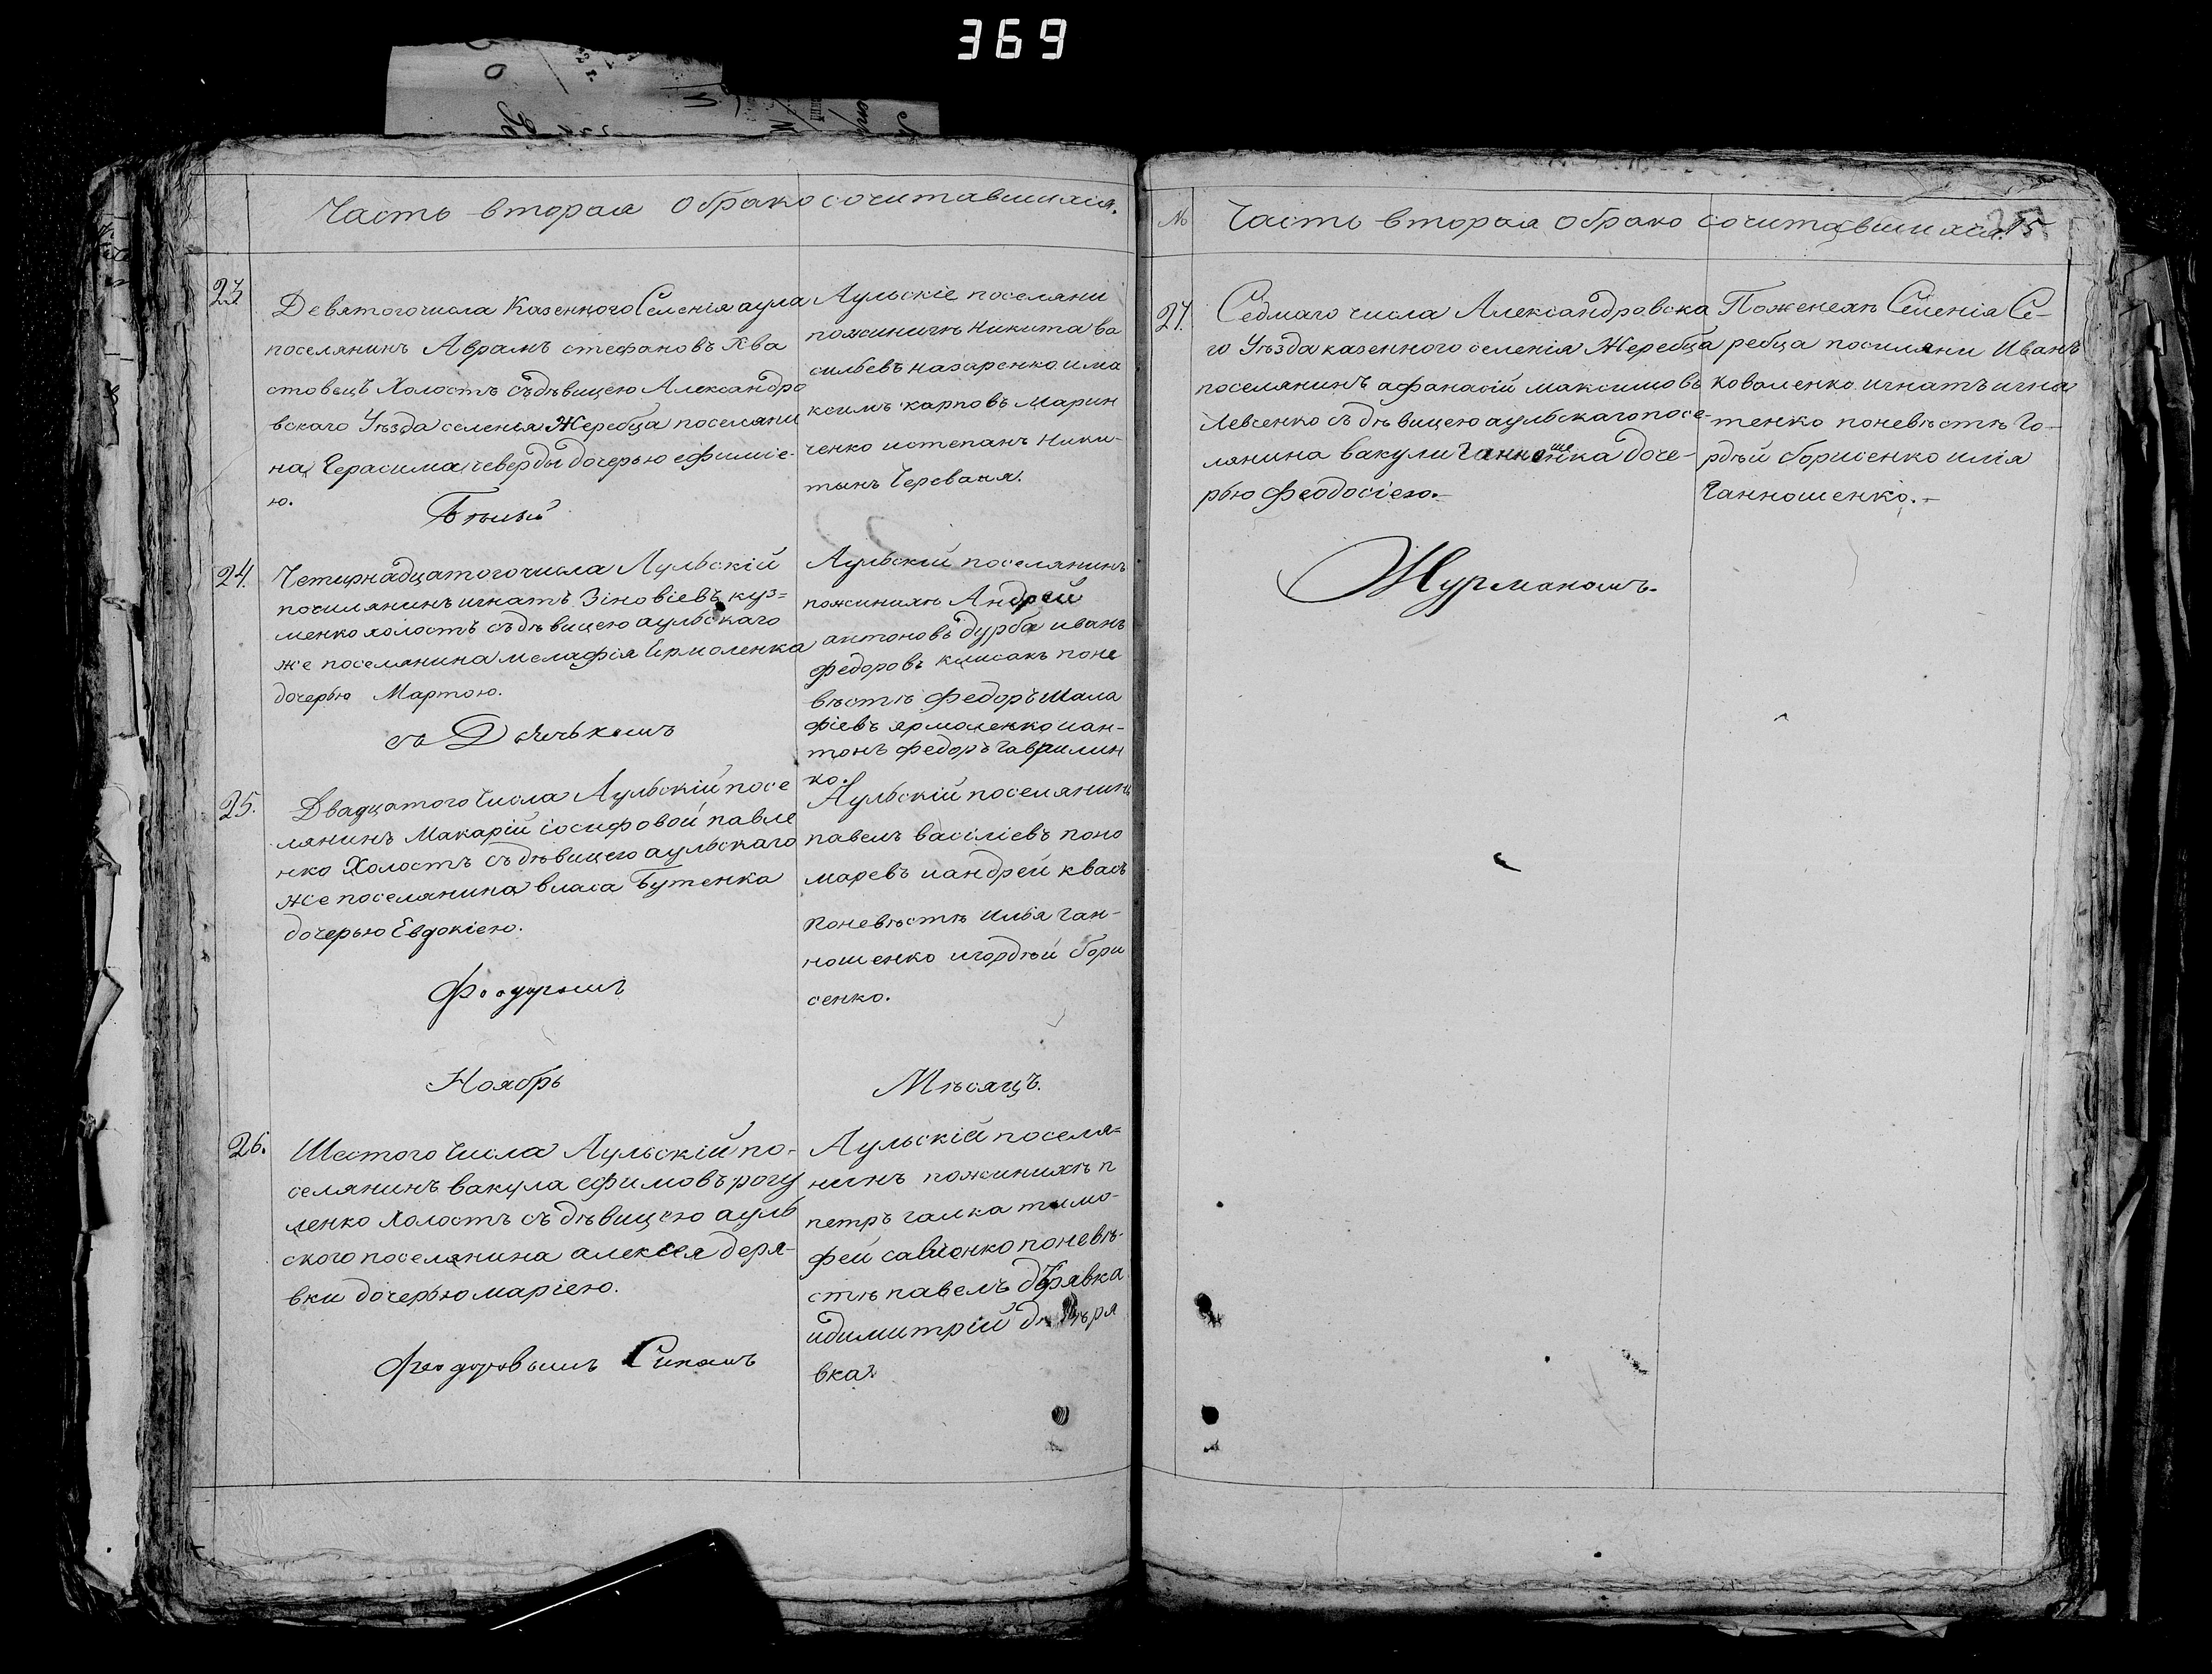 369
Часть вторая о бракосочитавшихся.
23
Девятого числа Казенного Селенія аула
поселянинъ Аврамъ стефановъ Ква
стовецъ Холостъ съ дѣвицею Александро
вскаго Уѣзда селенья Жеребца поселяни
на Герасима чеверды дочерью ефиміе-
ю.
Аульскіе поселяни
пожинихѣ Никита ва
сильевъ назаренко има
ксимъ карповъ Марин
ченко истепанъ Ники-
тынъ Череваня.
24.
Четирнадцатого числа Аульскій
посилянинъ игнатъ Зіновіевъ куз=
менко холостъ съ дѣвицею аульскаго
же поселянина мелафія Ермоленка
дочерью Мартою.
Аульскій поселянинъ
пожинихѣ Андрей
антоновъ дурба иванъ
федоровъ поне
вѣстѣ Федоръ Мала
фіевъ ярмоленко иан-
тонъ федоръ гаврилин
ко.
25.
Двадцатого Числа Аульскій посе
лянинъ Макарій іосифовой павле
нко Холостъ съ дѣвицею аульскаго
же поселянина власа Бутенка
дочерью Евдокіею.
Аульскій поселянинъ
павелъ василіевъ поно
маревъ иандрей квасъ
поневѣстѣ илья ган-
ношенко игордѣй бори
сенко.
Ноябрь Мѣсяцъ.
26.
Шестого Числа Аульскій по-
селянинъ вакула ефимовъ рогу
ленко холостъ съ дѣвицею ауль
ского поселянина алексея деря-
вки дочерью маріею.
Аульскій поселя=
нинъ пожинихѣ п
петръ галка тимо-
фей савченко поневѣ-
стѣ павелъ дерявка
идимитрій
вка
№ Часть вторая о брако сочитавшихся. 15
27.
Седмаго числа Александровска
го Уѣзда казенного селенія Жеребца
поселянинъ афанасій максимовъ
Левченко съ дѣвицею аульскаго посе-
лянина вакули Ганношенка доче-
рью Феодосіею.-
Поженехѣ Селенія Же-
ребца посиляни Иванъ
коваленко игнатъ игна
тенко поневѣстѣ Го-
рдѣй борисенко илія
Ганношенко.-